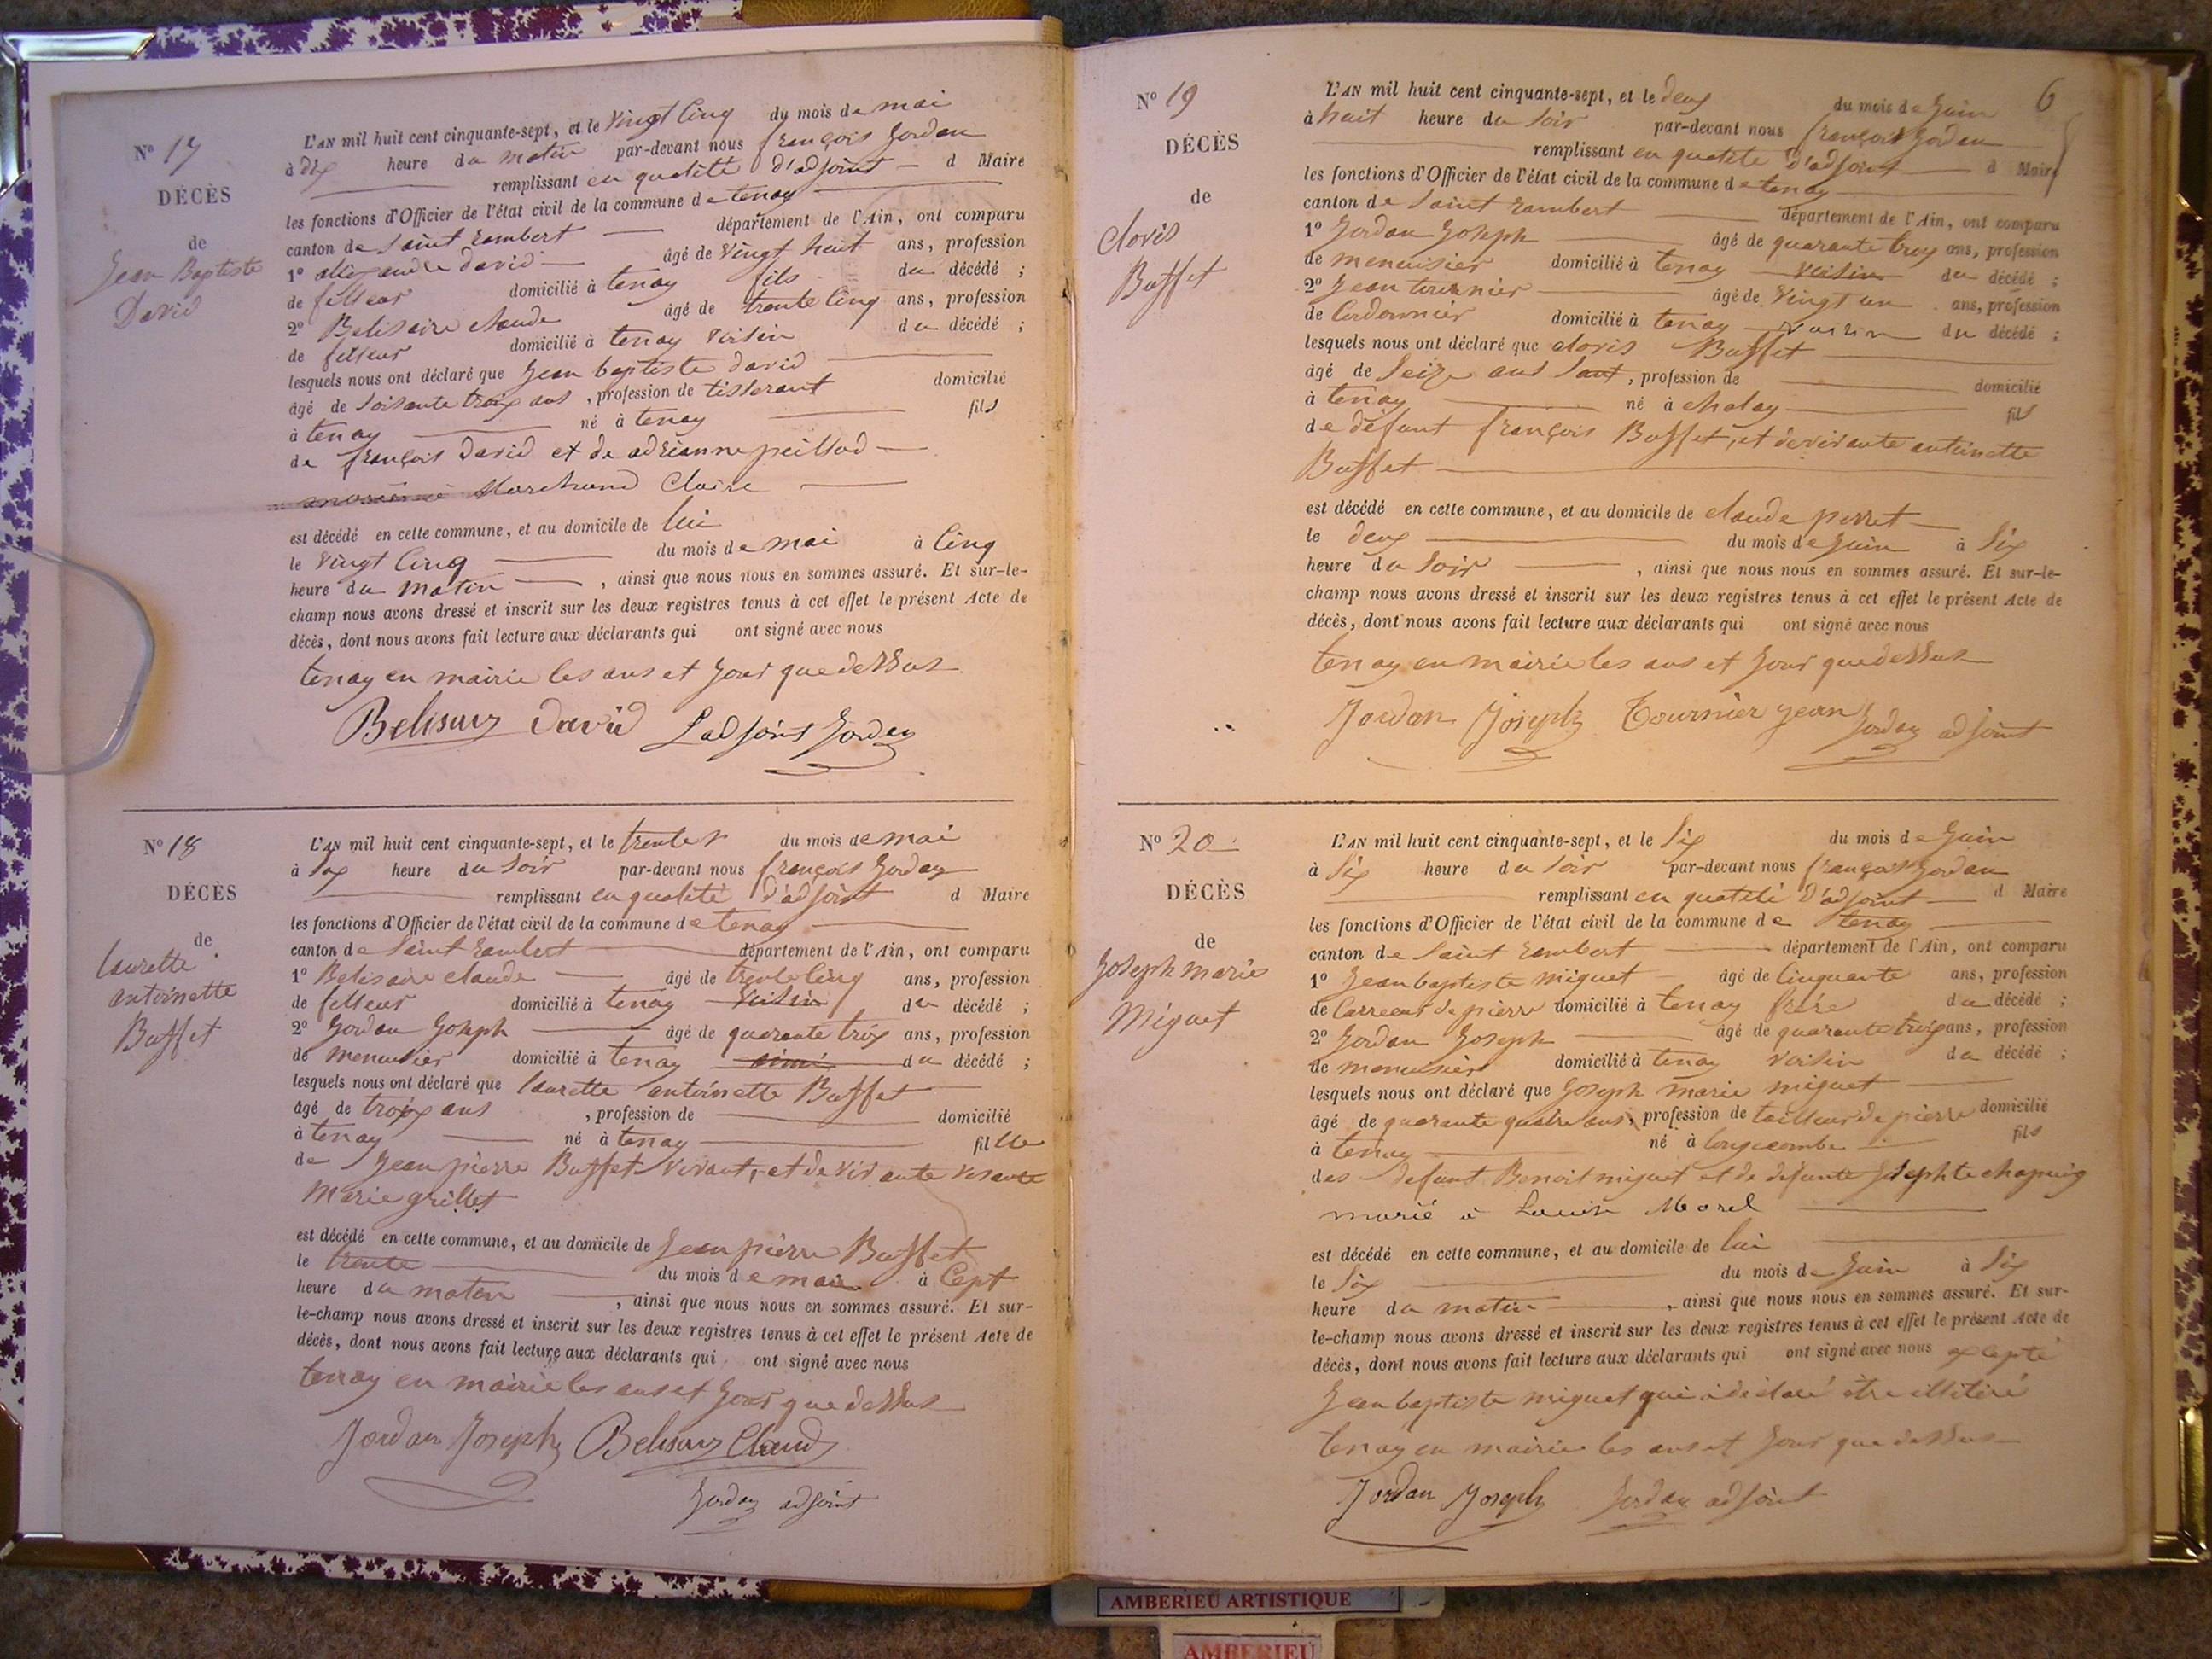 N° 17
DÉCÈS
de
Jean Baptiste
David
L'AN mil huit cent cinquante-sept, et le Vingt Cinq du mois de mai
à dix heure du matin par-devant nous françois Jordan
remplissant en qualité d'adjoint d Maire
les fonctions d'Officier de l'état civil de la commune de tenay
canton de Saint Rambert département de l'Ain, ont comparu
1° david âgé de Vingt huit ans, profession
de fileur domicilié à tenay fils du décédé ;
2° Belisaire claude âgé de trente Cinq ans, profession
de fileur domicilié à tenay Voisin du décédé ;
lesquels nous ont déclaré que Jean baptiste david
âgé de Soisante trois ans, profession de tisserant domicilié
à tenay né à tenay fils
de françois David et de adrianne peillod
Marchand Claire
est décédé en cette commune, et au domicile de lui
le Vingt Cinq du mois de mai à Cinq
heure du Matin, ainsi que nous nous en sommes assuré. Et sur-le-
champ nous avons dressé et inscrit sur les deux registres tenus à cet effet le présent Acte de
décès, dont nous avons fait lecture aux déclarants qui ont signé avec nous
tenay en mairie les ans et Jour que dessus
David L'adjoint Jordan
N° 18
DÉCÈS
de
laurette
antoinette
Buffet
L'AN mil huit cent cinquante-sept, et le trente du mois de mai
à heure du Soir par-devant nous françois Jordan
remplissant en qualité d'adjoint d Maire
les fonctions d'Officier de l'état civil de la commune de tenay
canton de Saint Rambert département de l'Ain, ont comparu
1° Belisaire claude âgé de trente Cinq ans, profession
de fileur domicilié à tenay Voisin du décédé ;
2° Jordan Joseph âgé de quarante trois ans, profession
de menuisier domicilié à tenay du décédé ;
lesquels nous ont déclaré que laurette antoinette Buffet
âgé de trois ans, profession de domicilié
à tenay né à tenay fille
de Jean pierre Buffet Vivant, et de Vivante
Marie grillet
est décédé en cette commune, et au domicile de Jean pierre Buffet
le trente du mois de mai à Cept
heure du maten, ainsi que nous nous en sommes assuré. Et sur-
le-champ nous avons dressé et inscrit sur les deux registres tenus à cet effet le présent Acte de
décès, dont nous avons fait lecture aux déclarants qui ont signé avec nous
tenay en mairie les ans et Jour que dessus
Jordan Joseph
Jordan adjoint
6
N° 19
DÉCÈS
de
Clovis
Buffet
L'AN mil huit cent cinquante-sept, et le deux du mois de Juin
à huit heure du Soir par-devant nous françois Jordan
remplissant en qualité d'adjoint d Maire
les fonctions d'Officier de l'état civil de la commune de tenay
canton de Saint Rambert département de l'Ain, ont comparu
1° Jordan Joseph âgé de quarante trois ans, profession
de menuisier domicilié à tenay Voisin du décédé ;
2° Jean tournier âgé de Vingt un ans, profession
de Cordonnier domicilié à tenay voisin du décédé ;
lesquels nous ont déclaré que clovis Buffet
âgé de Seize ans, profession de domicilié
à tenay né à chaley fils
de défunt françois Buffet, et de vivante antoinette
Buffet
est décédé en cette commune, et au domicile de claude perret
le deux du mois de Juin à Six
heure du Soir, ainsi que nous nous en sommes assuré. Et sur-le-
champ nous avons dressé et inscrit sur les deux registres tenus à cet effet le présent Acte de
décès, dont nous avons fait lecture aux déclarants qui ont signé avec nous
tenay en mairie les ans et Jour que dessus
Jordan Joseph Tournier jean Jordan adjoint
N° 20
DÉCÈS
de
Joseph Marie
Miguet
L'AN mil huit cent cinquante-sept, et le Six du mois de Juin
à Six heure du Soir par-devant nous françois Jordan
remplissant en qualité d'adjoint d Maire
les fonctions d'Officier de l'état civil de la commune de tenay
canton de Saint Rambert département de l'Ain, ont comparu
1° Jean baptiste miguet âgé de Cinquante ans, profession
de de pierre domicilié à tenay frère du décédé ;
2° Jordan Joseph âgé de quarante trois ans, profession
de menuisier domicilié à tenay Voisin du décédé ;
lesquels nous ont déclaré que Joseph marie miguet
âgé de quarante quatre ans, profession de tailleur de pierre domicilié
à tenay né à longecombe fils
des défunt Benoit miguet et de défunte
marié à Louise Morel
est décédé en cette commune, et au domicile de lui
le Six du mois de Juin à Six
heure du matin, ainsi que nous nous en sommes assuré. Et sur-
le-champ nous avons dressé et inscrit sur les deux registres tenus à cet effet le présent Acte de
décès, dont nous avons fait lecture aux déclarants qui ont signé avec nous excepté
Jean baptiste miguet qui a déclaré être illitiré
tenay en mairie les ans et Jour que dessus
Jordan Joseph Jordan adjoint
AMBERIEU ARTISTIQUE
AMBERIEU